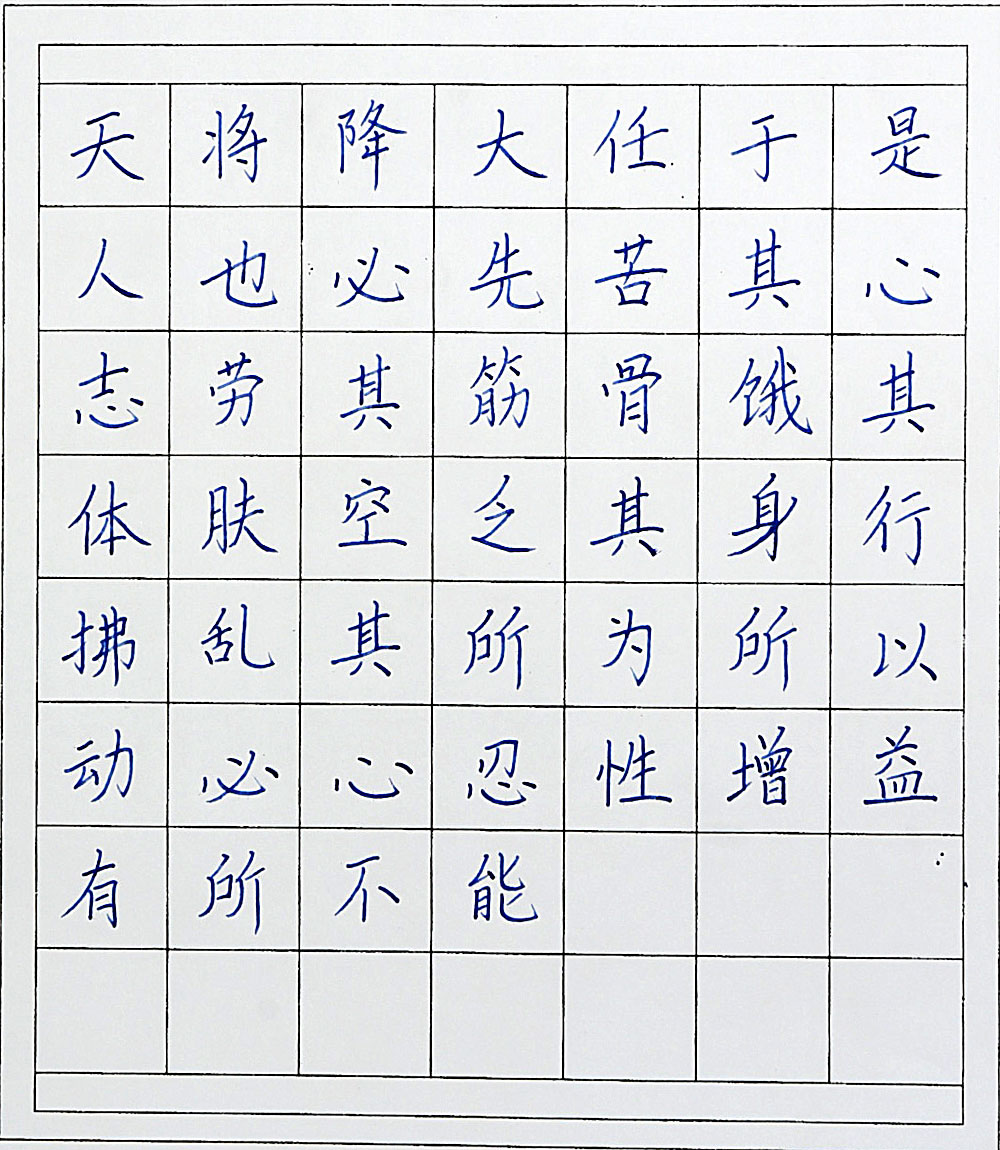 天将降大任于是
人也必先苦其心
志劳其筋骨饿其
体肤空乏其身行
拂乱其所为所以
动必心忍性增益
有所不能